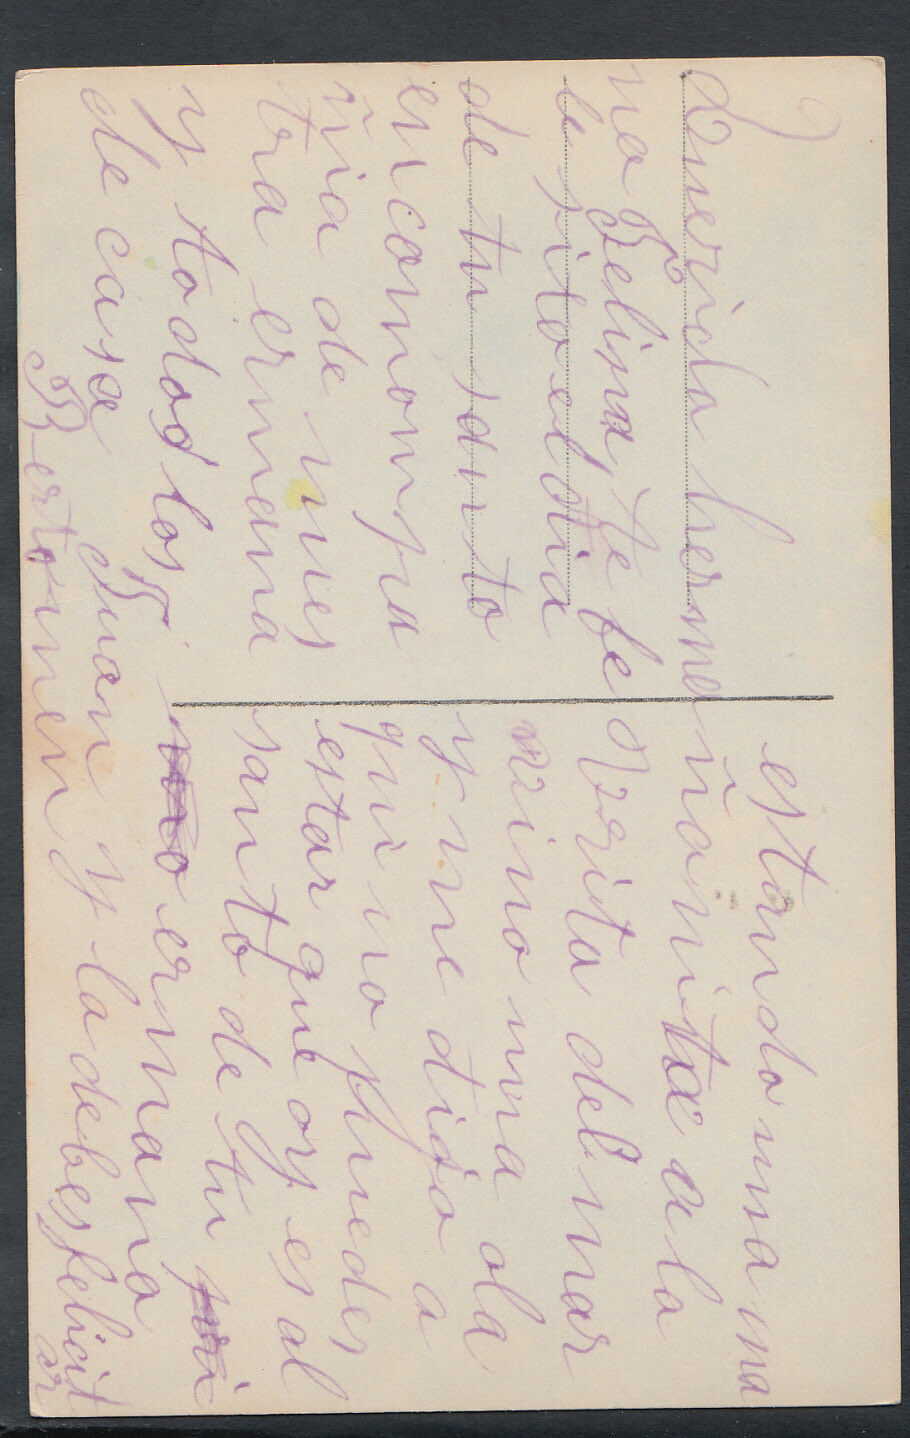 Querida herma
na Belina, te fe
lisito el dia
de tu santo
en conompa
ñia de nues
tra ermana
y todos los
de casa
Juan
Bertomeu
estando una ma
ñanita a la
orita del mar
vino una ola
y me dijo a
qui no puedes
estar que oy es al
santo de tu pri
mo ermana
y la debes felicit
ar